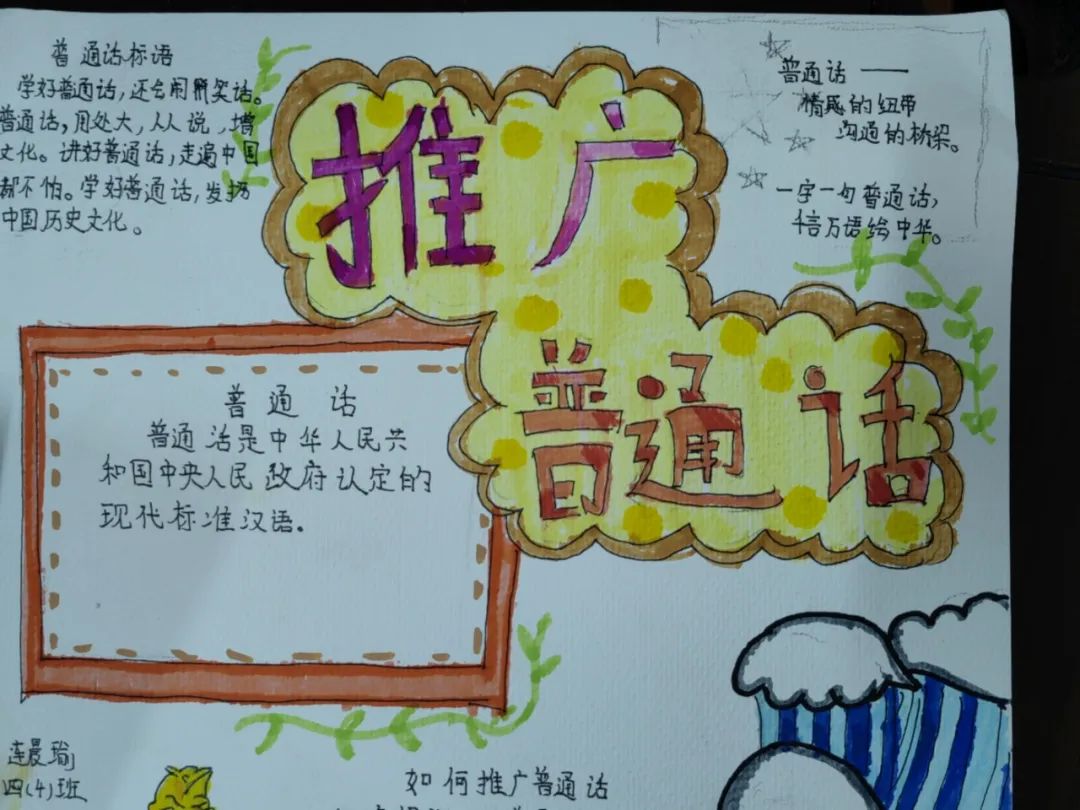 普通话标语
学好普通话,还会闹笑话。
普通话,用处大,人人说,增
文化。讲好普通话,走遍中国
都不怕。学好普通话,发扬
中国历史文化。
推广
普通话
普通话——
情感的纽带
沟通的桥梁。
一字一句普通话,
千言万语绘中华。
普通话
普通话是中华人民共
和国中央人民政府认定的
现代标准汉语.
连晨瑜
四(4)班
如何推广普通话